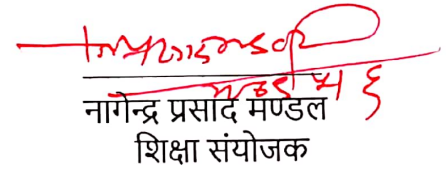 नागेन्द्र प्रसाद मण्डल
शिक्षा संयोजक